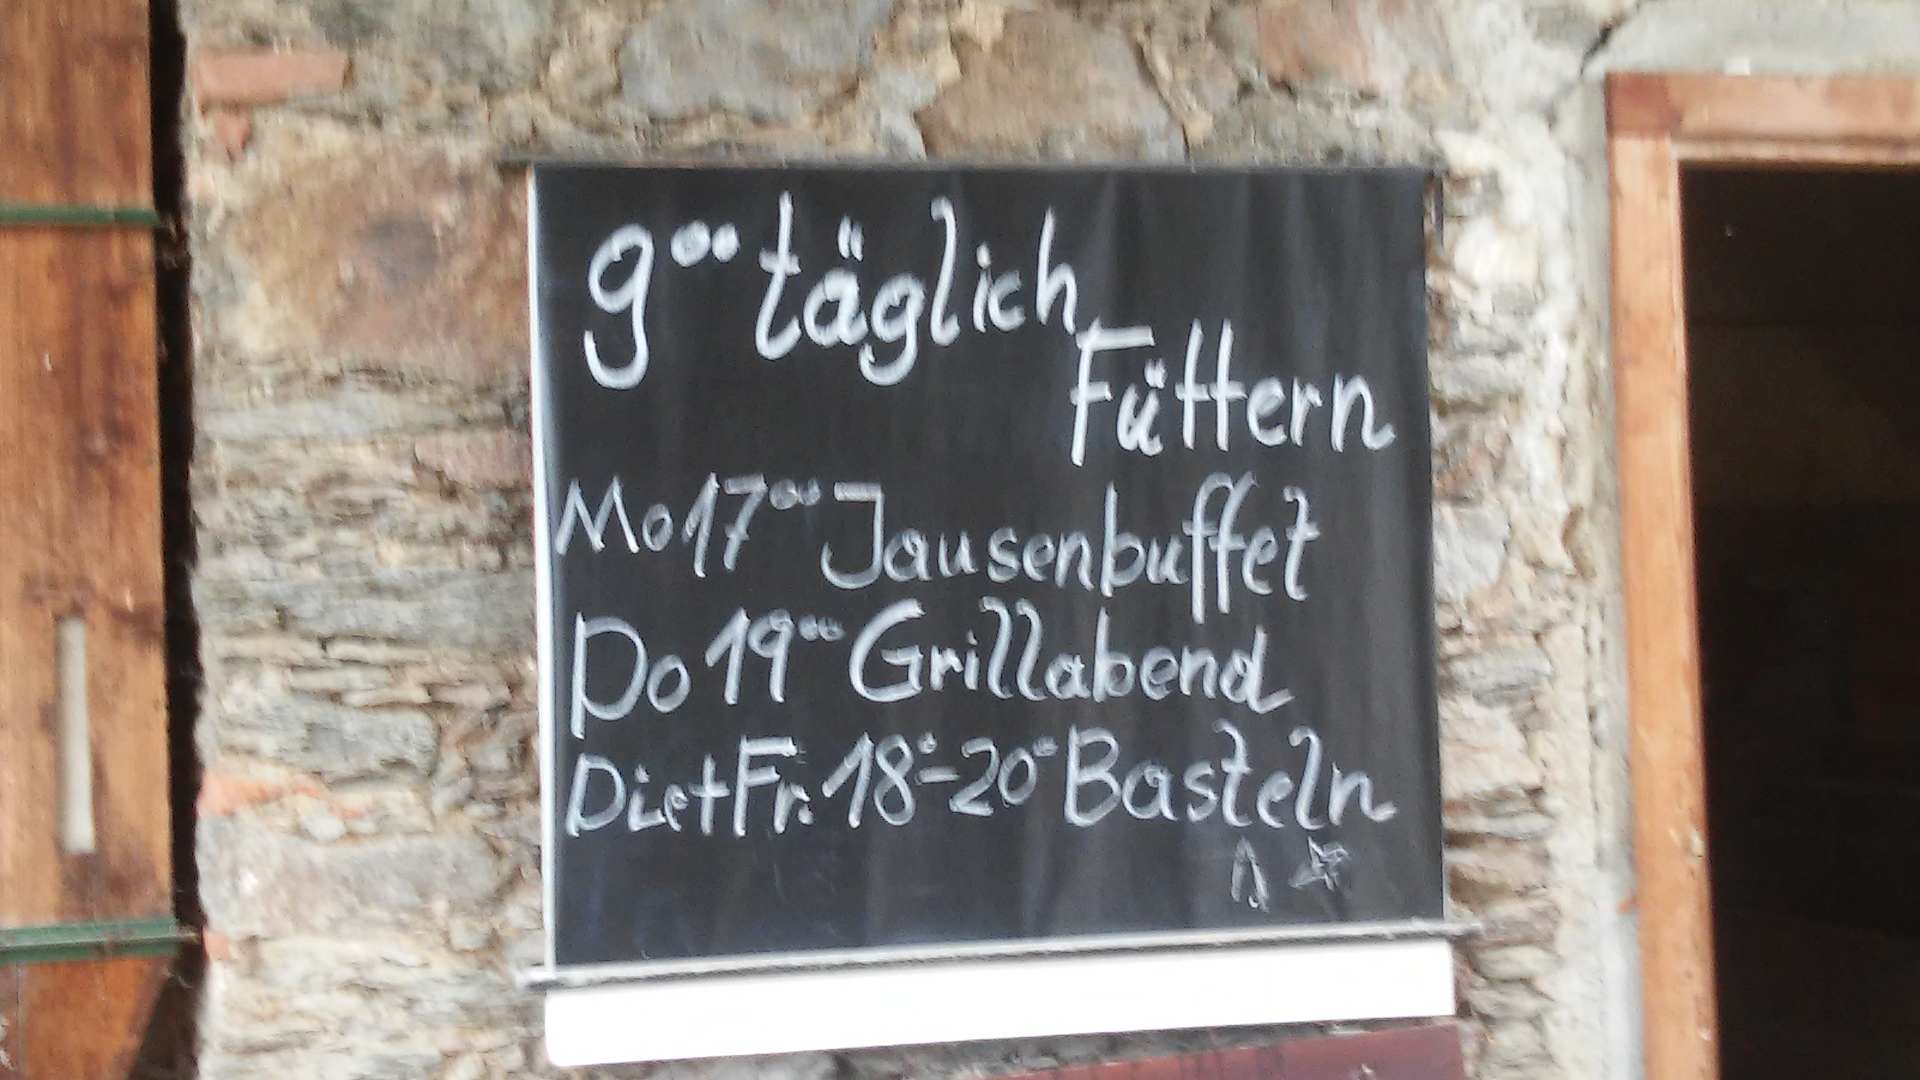 9°° täglich
Füttern
Mo 17°° Jausenbuffet
Do 19°° Grillabend
Die+Fr. 18°-20° Basteln